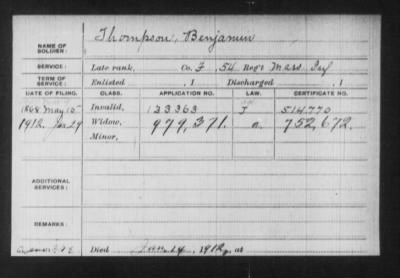 Thompson, Benjamin
NAME OF SOLDIER:
SERVICE: Late rank, Co. F, 54 Reg't Mass Inf
TERM OF SERVICE: Enlisted , 1 Discharged , 1
DATE OF FILING. CLASS. APPLICATION NO. LAW. CERTIFICATE NO.
1868 May 15 Invalid, 133363 J 514,770
1912. Jan 29 Widow, 979,371. a. 752,672.
Minor,
ADDITIONAL SERVICES:
REMARKS:
Died Jan 14, 1912, at